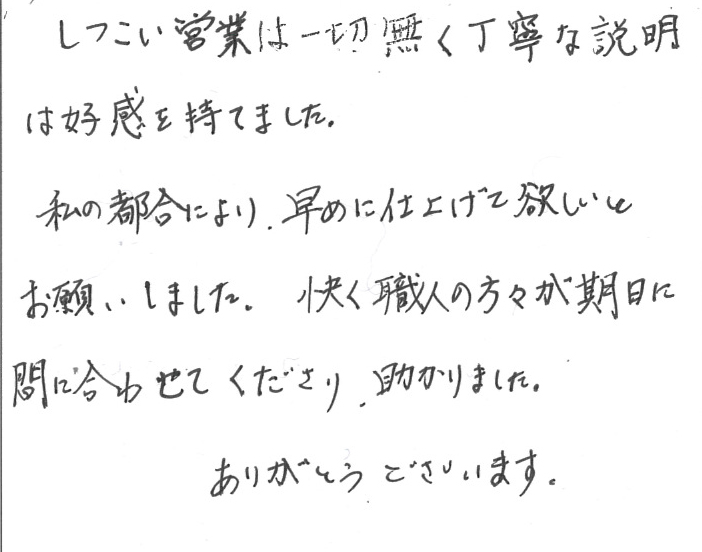 しつこい営業は一切無く丁寧な説明
は好感を持てました。
私の都合により、早めに仕上げて欲しいと
お願いしました。 快く職人の方々が期日に
間に合わせてくださり、助かりました。
ありがとうございます。